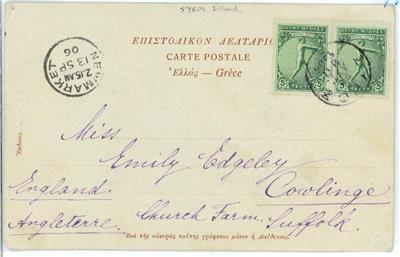 SYROS Island.
ΕΠΙΣΤΟΛΙΚΟΝ ΔΕΛΤΑΡΙΟ
CARTE POSTALE
Ἑλλὰς — Grèce
NEWMARKET
2.15 AM
13 SP
06
5 5
Ἔκδοσις
Miss
Emily Edgeley
England. Cowlinge
Angleterre. Church Farm. Suffolk.
Ἐπὶ τῆς πλευρᾶς ταύτης γράφεται μόνον ἡ Διεύθυνσις.